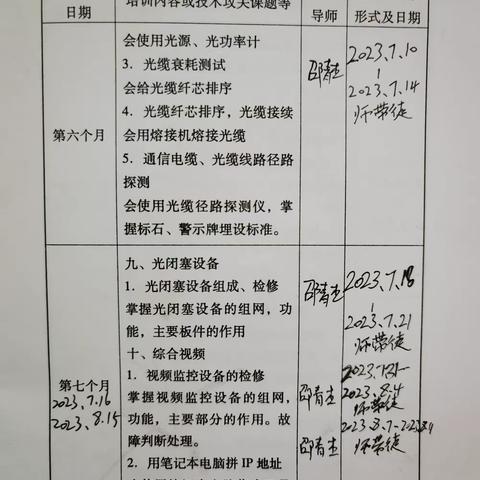 日期
培训内容或技术攻关课题等
导师
形式及日期
会使用光源、光功率计
3．光缆衰耗测试
会给光缆纤芯排序
4．光缆纤芯排序，光缆接续
会用熔接机熔接光缆
5．通信电缆、光缆线路径路
探测
会使用光缆径路探测仪，掌
握标石、警示牌埋设标准。
第六个月
邵青杰
2023、7、10
-
2023、7、14
师带徒
九、光闭塞设备
1．光闭塞设备组成、检修
掌握光闭塞设备的组网，功
能，主要板件的作用
邵青杰
2023、7、18
-
2023、7、21
师带徒
十、综合视频
1．视频监控设备的检修
掌握视频监控设备的组网，
功能，主要部分的作用。故
障判断处理。
2．用笔记本电脑拼 IP 地址
第七个月
2023、7.16
2023、8.15
邵青杰
2023、8.4
师带徒
邵青杰
师带徒